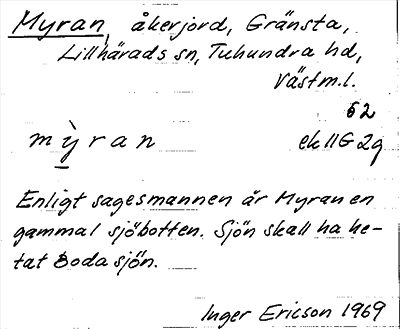 Myran, åkerjord, Gränsta,
Lillhärads sn, Tuhundra hd,
Västm.l.
62
mỳran ek 11G 2g
Enligt sagesmannen är Myran en
gammal sjöbotten. Sjön skall ha he-
tat Boda sjön.
Inger Ericson 1969